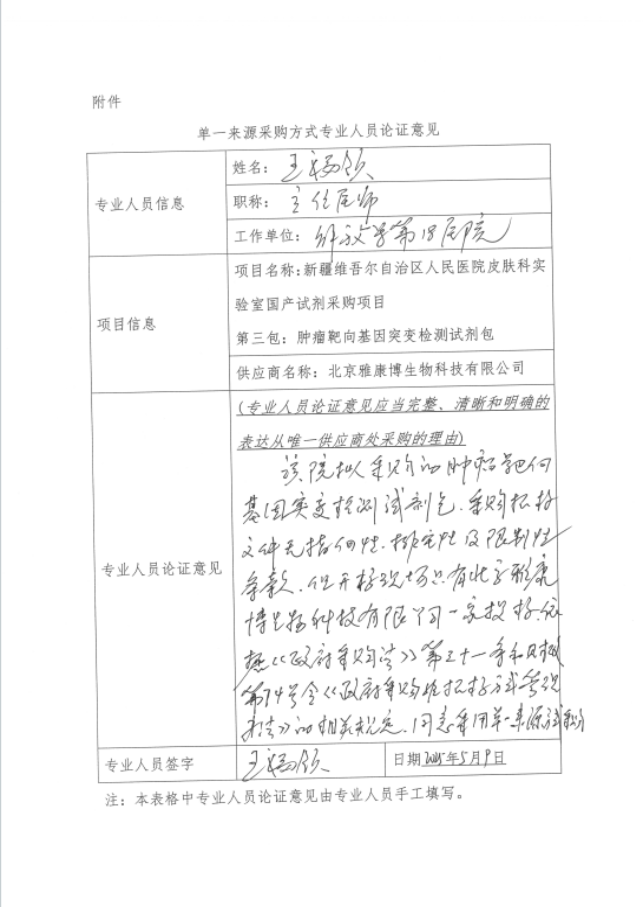 附件
单一来源采购方式专业人员论证意见
专业人员信息
姓名：王福领
职称：主任医师
工作单位：解放军第18医院
项目信息
项目名称：新疆维吾尔自治区人民医院皮肤科实
验室国产试剂采购项目
第三包：肿瘤靶向基因突变检测试剂包
供应商名称：北京雅康博生物科技有限公司
专业人员论证意见
(专业人员论证意见应当完整、清晰和明确的
表达从唯一供应商处采购的理由)
该院拟采购的肿瘤靶向
基因突变检测试剂包，采购招标
文件无指向性、排它性及限制性
条款，但开标现场只有北京雅康
博生物科技有限公司一家投标，依
照《政府采购法》第三十一条和财政
第74号令《政府采购非招标方式管理
办法》的相关规定，同意采用单一来源方式采购
专业人员签字
王福领
日期 年5月9日
注：本表格中专业人员论证意见由专业人员手工填写。